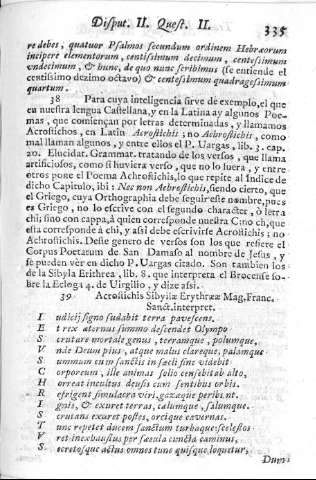 Disput. II. Quest. II.
335
re debes, quatuor Psalmos secundum ordinem Hebræorum
incipere elementorum, centissimum decimum, centessimum
vndecimum, & hunc, de quo nunc scribimus (se entiende el
centissimo dezimo octavo) & centesimum quadragessimum
quartum.
38 Para cuya inteligencia sirve de exemplo, el que
en nuestra lengua Castellana, y en la Latina ay algunos Poe-
mas, que comiençan por letras determinadas, y llamamos
Acrostichos, en Latin Acrostichis; no Achrostichis, como
mal llaman algunos, y entre ellos el P. Vargas, lib. 3. cap.
20. Elucidat. Grammat. tratando de los versos, que llama
artificiosos, como si huviera verso, que no lo fuera, y entre
otros pone el Poema Achrostichis, lo que repite al Indice de
dicho Capitulo, ibi: Nec non Achrostichis, siendo cierto, que
el Griego, cuya Orthographia debe seguir este nombre, pues
es Griego, no lo escrive con el segundo character, ò letra
chi, sino con cappa, à quien corresponde nuestra C, no ch, que
esta corresponde à chi, y assi debe escrivirse Acrostichis; no
Achrostichis. Deste genero de versos son los que refiere el
Corpus Poetarum de San Damaso al nombre de Jesus, y
se pueden ver en dicho P. Vargas citado. Son tambien los
de la Sibyla Erithrea, lib. 8. que interpreta el Brocense so-
bre la Ecloga 4. de Virgilio, y dize assi.
39 Acrostichis Sibyllæ Erythrææ Mag. Franc.
Sanct. interpret.
I udicij signo sudabit terra pavescens.
E t rex æternus summo descendet Olympo
S cruture mortale genus, terramque, polumque,
V nde Deum pius, atque malus clareque, palamque
S ummum cum sanctis in sæcli fine videbit
C orporeum, ille animas solio censebit ab alto,
H orreat incultus densis cum sentibus orbis.
R efrigent simulacra viri, gazæque peribunt.
I gnis, & exuret terras, cælumque, salumque.
S crutans exuret postes, orcique cavernas.
T unc repetet ducem sanctum turbaque: scelestos
V ret inexhaustus per sæcula cuncta caminus,
S ecretosque actus omnes tunc quisque loquetur,
Dum